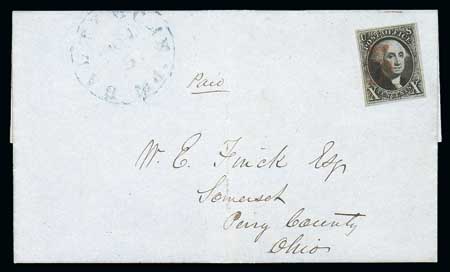 POST OFFICE
X X
Paid
W. E. Finck Esq
Somerset
Perry County
Ohio